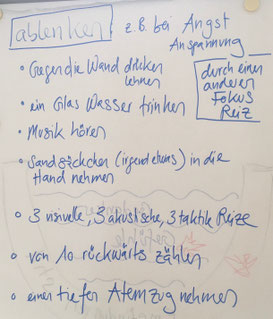 ablenken z.B. bei Angst
Anspannung
• Gegen die Wand drücken
lehnen
durch einen
anderen
Fokus
Reiz
• ein Glas Wasser trinken
• Musik hören
• Sandsäckchen (irgendetwas) in die
Hand nehmen
• 3 visuelle, 3 akustische, 3 taktile Reize
• von 10 rückwärts zählen
• einen tiefen Atemzug nehmen